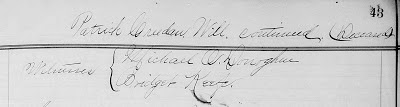 43
Patrick Creedon Will, continued, (Deceased)
Witnesses { Michael O. Donoghue
Bridget Keefe.